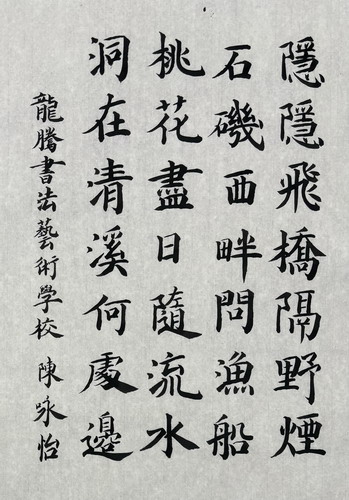 隱隱飛橋隔野煙
石磯西畔問漁船
桃花盡日隨流水
洞在清溪何處邊
龍騰書法藝術學校 陳咏怡